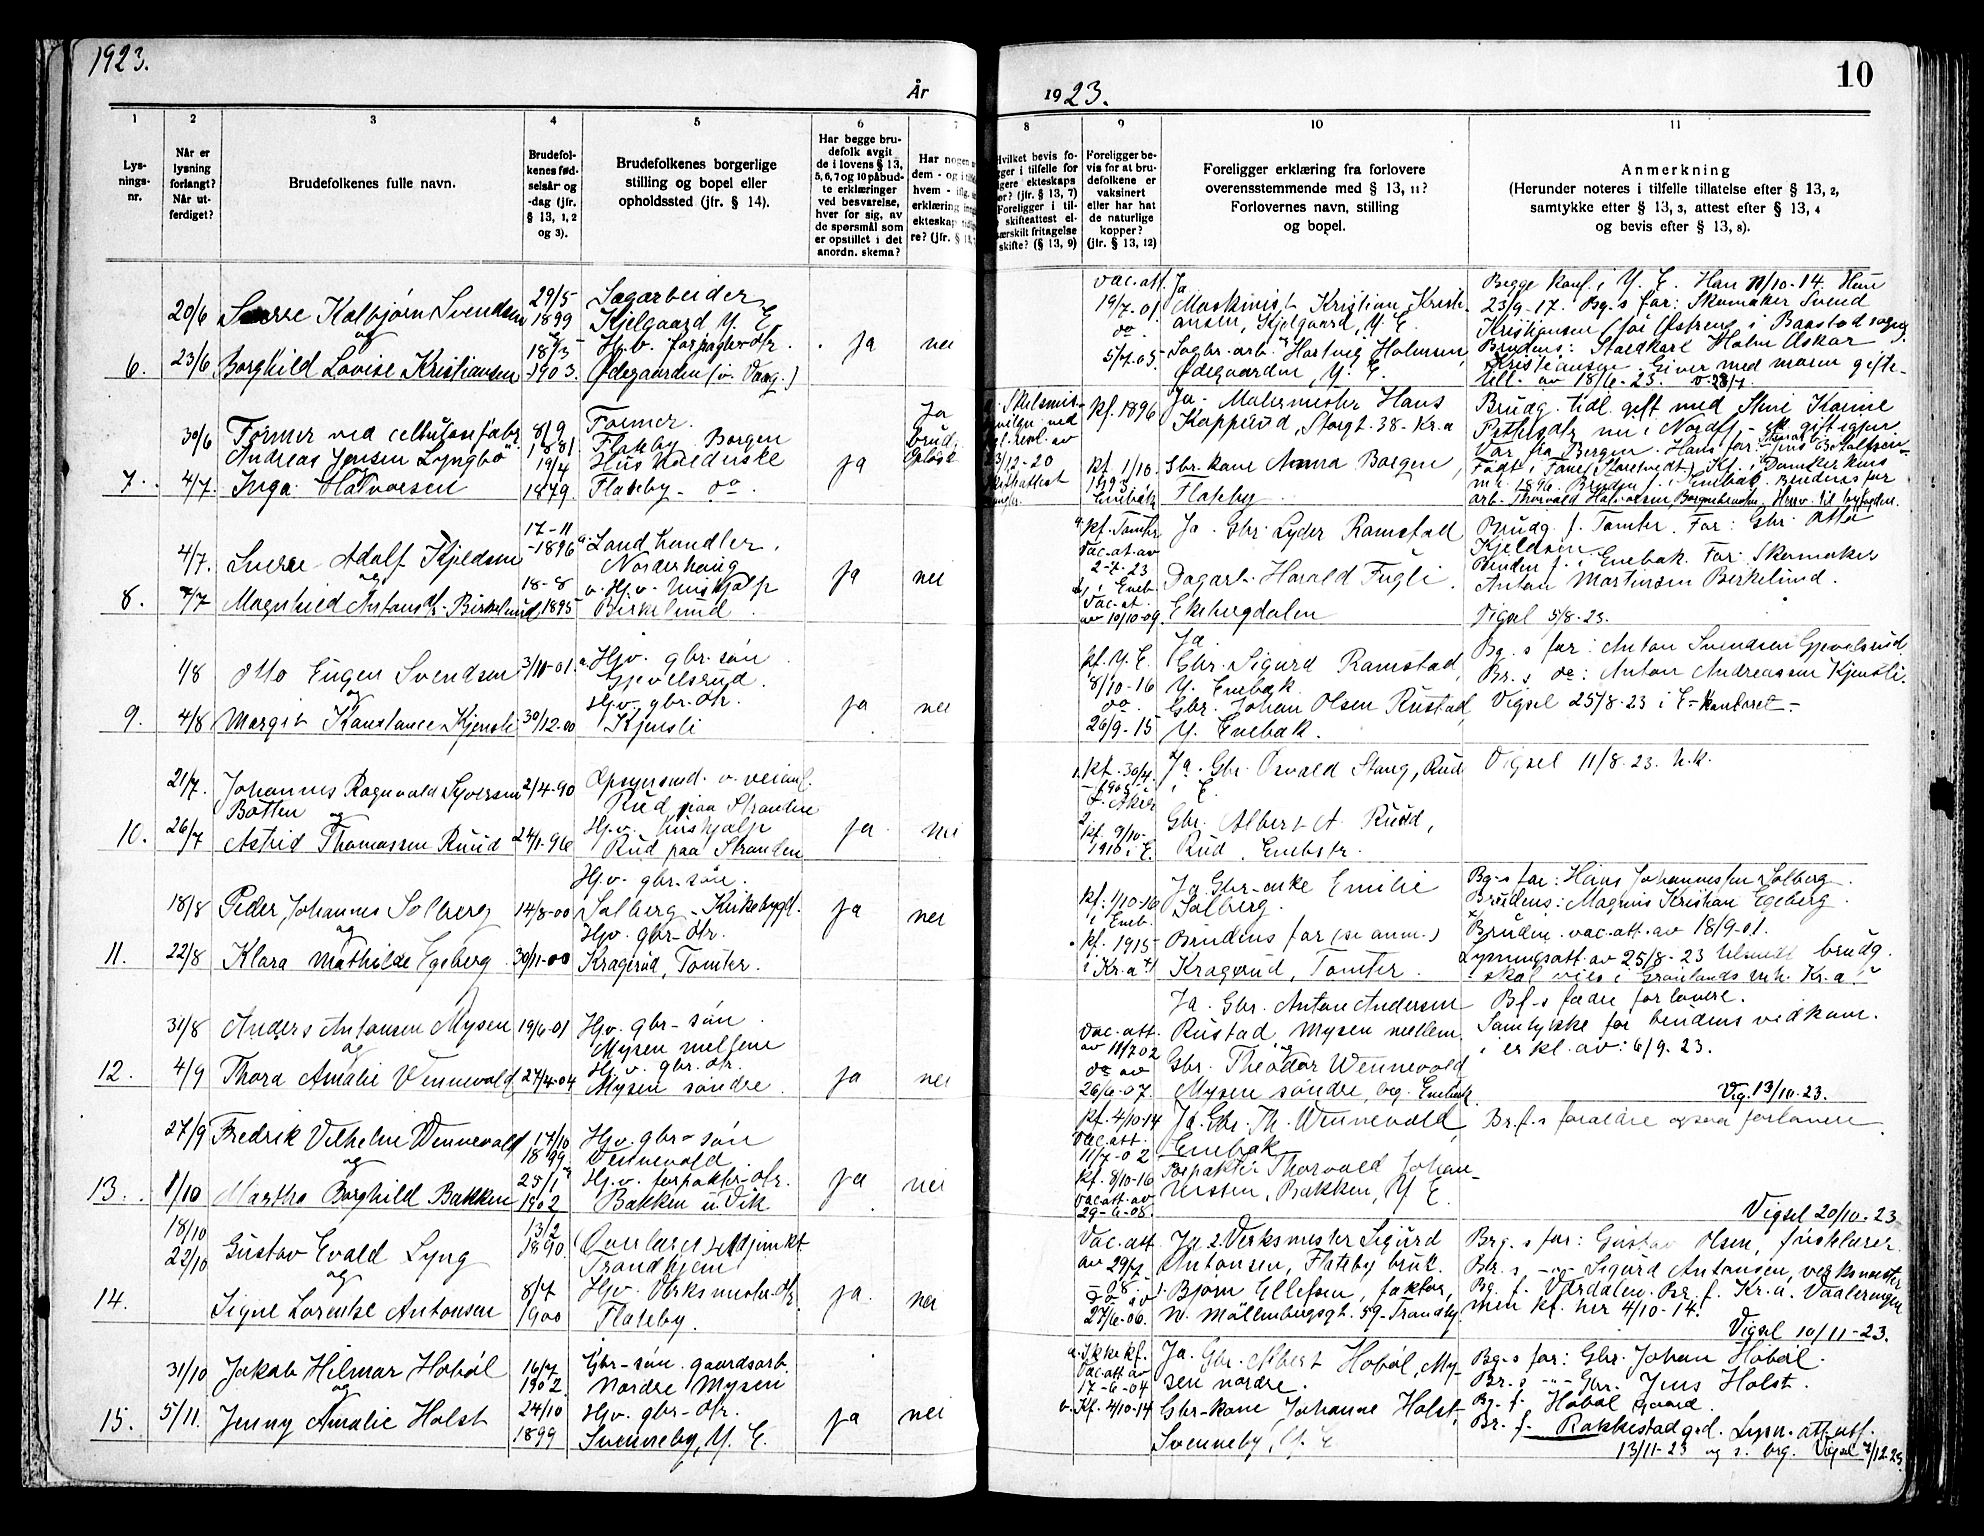 1923.
År 1923.
10
1
2
3
4
5
6
7
8
9
10
11
Lys-
nings-
nr.
Når er
lysning
forlangt?
Når ut-
ferdiget?
Brudefolkenes fulle navn.
Brudefol-
kenes fød-
selsår og
-dag (jfr.
§ 13, 1, 2
og 3).
Brudefolkenes borgerlige
stilling og bopel eller
opholdssted (jfr. § 14).
Har begge bru-
defolk avgit
de i lovens § 13,
5, 6, 7 og 10 påbud-
te erklæringer
ved besvarelse,
hver for sig, av
de spørsmål som
er opstillet i det
anordn. skema?
Har nogen
dem - og i
hvem -
erklæring
ekteskap
re? (jfr. §
Hvilket bevis fo-
ligger i tilfelle for
ekteskaps
(jfr. § 13, 7)
Foreligger i til-
skifteattest el-
særskilt fritagelse
skifte? (§ 13, 9)
Foreligger be-
vis for at bru-
defolkene er
vaksinert
eller har hat
de naturlige
kopper?
(jfr. § 13, 12)
Foreligger erklæring fra forlovere
overensstemmende med § 13, 11?
Forlovernes navn, stilling
og bopel.
Anmerkning
(Herunder noteres i tilfelle tillatelse efter § 13, 2,
samtykke efter § 13, 3, attest efter § 13, 4
og bevis efter § 13, 8).
6.
20/6
23/6
Sverre Kolbjørn Svendsen
og
Borghild Lovise Kristiansen
29/5
1899
18/3
1903.
Sagarbeider
Kjelgaard Y. E.
Hj.v. forpagter dtr.
Ødegaarden (v. Vaag.)
ja
nei
vac.att.
19/7.01.
do
5/7.05.
Ja
Maskinist Kristian Kristi-
ansen, Kjelgaard, Y. E.
Sagbr. arb. Hartvig Halvorsen,
Ødegaarden, Y. E.
Begge konf. i Y. E. Han 11/10-14. Hun
23/9-17. Bg.s far: Skomaker Svend
Kristiansen Østreng i Baastad sogn.
Brudens: Staldkarl Halvor Oskar
Kristiansen. Giver med moren gifte-
till. av 18/6-23.
7.
30/6
4/7.
Former ved cellulosefabr.
Andreas Jensen Lyngbø
Inga Halvorsen
8/9
1881
19/4
1879.
Former.
Flateby. Borgen
Hus holderske
Flateby - do
ja
Ja
brud.
opløst
Skilsmis-
3/12-20
kf. 1896
kf. 1/10.
1893
Enebak
Ja - Malermester Hans
Kopperud, Storgt. 38. Kr.a
Gbr. kone Anna Borgen,
Flateby.
Brudg. tidl. gift med
Var fra Bergen. Hans far:
Født i Fane, Kf. i Domkirken
1896. Bruden f. i Enebak. Brudens far
arb. Thorvald Halvorsen,
8.
4/7.
7/7
Sverre Adolf Kjeldsen
og
Magnhild Antons dtr. Birkelund
17-11
-1896
18-8
1895
Landhandler.
Norderhaug
v. Hj.v. hushjælp
Birkelund.
ja
nei
kf. Tomter
Vac.at.av
2-7.23
i Eneb.
Vac.at
av 10/10-09
Ja. Gbr. Lyder Ramstad
Dagarb. Harald Fugli.
Ekebergdalen
Brudg. f. Tomter. Far: Gbr. Otto
Kjeldsen.
Bruden f. i Enebak. Far: Skomaker
Anton Martinsen Birkelund.
Vigsel 5/8-23.
9.
1/8
4/8
Otto Eugen Svendsen
og
Margit Konstance Kjensli
3/11-01.
30/12-00
Hjv. gbr. søn
Gjevelsrud.
Hjv. gbr. dtr.
Kjensli
ja
nei
kf. Y. E.
8/10-16
do.
26/9-15
Ja
Gbr. Sigurd Ramstad,
Y. Enebak
Gbr. Johan Olsen Rustad,
Y. Enebak.
Bg. s far: Anton Svendsen Gjevelsrud.
Br. s do: Anton Andreassen Kjensli.
Vigsel 25/8-23 i E-kontoret-
10.
21/7.
26/7
Johannes Ragnvald Syversen
Botten
og
Astrid Thomassen Ruud
2/4-90
24/1-96
Opsynsmd. v. veianl.
Rud paa Stranden
Hj.v. hushjælp
Rud paa Stranden
ja.
nei
1. kf. 30/4.
-1905 i
V. Aker
2.
kf. 9/10-
1910 i E.
Ja. Gbr. Osvald Stang, Rud
i E.
Gbr. Albert A. Ruud,
Rud, Enebstr.
Vigsel 11/8-23. h.k.
11.
18/8
22/8
Peder Johannes Solberg
og
Klara Mathilde Egeberg
14/8-00
30/11-00
Hj.v. gbr. søn.
Solberg - Kirkebygd.
Hjv. gbr. dtr.
Kragerud, Tomter.
ja
nei
kf. 1/10-16
i Eneb.
kf. 1915-
i Kr.a x)
Ja. Gbr-enke Emilie
Solberg.
Brudens far (se anm.)
Kragerud, Tomter.
Bg-s far: Hans Johannessen Solberg.
Brudens: Magnus Kristian Egeberg.
x)
Bruden vac.att. av 18/9-01.
Lysningsatt. av 25/8-23 tilsendt brudg.
skal vies i Grønlands mh. Kr.a.
12.
31/8
4/9
Anders Antonsen Mysen
og
Thora Amalie Vennevold
19/6-01
27/4-04
Hjv. gbr-søn
Mysen mellem
Hj.v. gbr. dtr.
Mysen søndre
ja
nei
Vac.att.
av 18/7 02
do av
26/6-07.
Ja. Gbr. Anton Andersen
Rustad, Mysen mellem,
og
Gbr. Theodor Wennevold
Mysen søndre, beg. Enebak.
Bf-s fædre forlovere.
Samtykke for brudens vedkom.
i erkl. av: 6/9.23.
Vig. 13/10-23.
13.
27/9
1/10
Fredrik Vilhelm Wennevold
og
Martha Borghild Bakken
17/10
1899
25/1
1902
Hjv. gbr-søn
Vennevold
Hj.v. forpakter-dtr.
Bakken u. Vik.
ja
nei
kf. 4/10-14
Vac.att.
11/7-02
kf. 8/10-16
vac.att av
29-6-08.
Ja. Gbr. Th. Wennevold,
Enebak
Forpakter Thorvald Johan-
nessen, Bakken, Y. E.
Br.f.s forældre ogsaa forlovere.
Vigsel 20/10-23
14.
18/10
22/10
Gustav Evald Lyng
og
Signe Lorentse Antonsen
13/2
1890
8/7
1900
Overlærer, Adjunkt
Trondhjem
Hjv. Verksmester-dtr.
Flateby.
ja.
nei
Vac.att
av 29/7
-98.
do av
27/6-06.
Ja 2. Verksmester Sigurd
Antonsen, Flateby bruk.
1. Bjørn Ellefsen, faktor,
N. Möllenbergsgt. 59-Trondhj.
Brg. s far: Gustav Olsen,
Br. s -"- Sigurd Antonsen, verksmester
Bg. f. Værdalen. Br. f. Kr.a. Vaalerengen
men kf. her 4/10-14.
Vigsel 10/11-23.
15.
31/10
5/11.
Jakob Hilmar Hobøl
og
Jenny Amalie Holst
16/7
1902
24/10
1899
Gbr-søn. gaardsarb.
Nordre Mysen
Hjv. gbr-dtr.
Svenneby, Y. E.
ja
nei
a. Ikke kf.
Vac att av
17-6-04
b. Kf. 4/10-14
Ja. Gbr. Albert Hobøl, My-
sen nordre.
Gbr-kone Johanne Holst,
Svenneby, Y. E
Bg-s far: Gbr. Johan Hobøl.
Br. s -"- Gbr. Jens Holst.
Bg. f. Hobøl gaard.
Br. f. Rakkestad gd. Lysn. att. utf.
13/11-23 og s. brg. Vigsel 7/12 23.